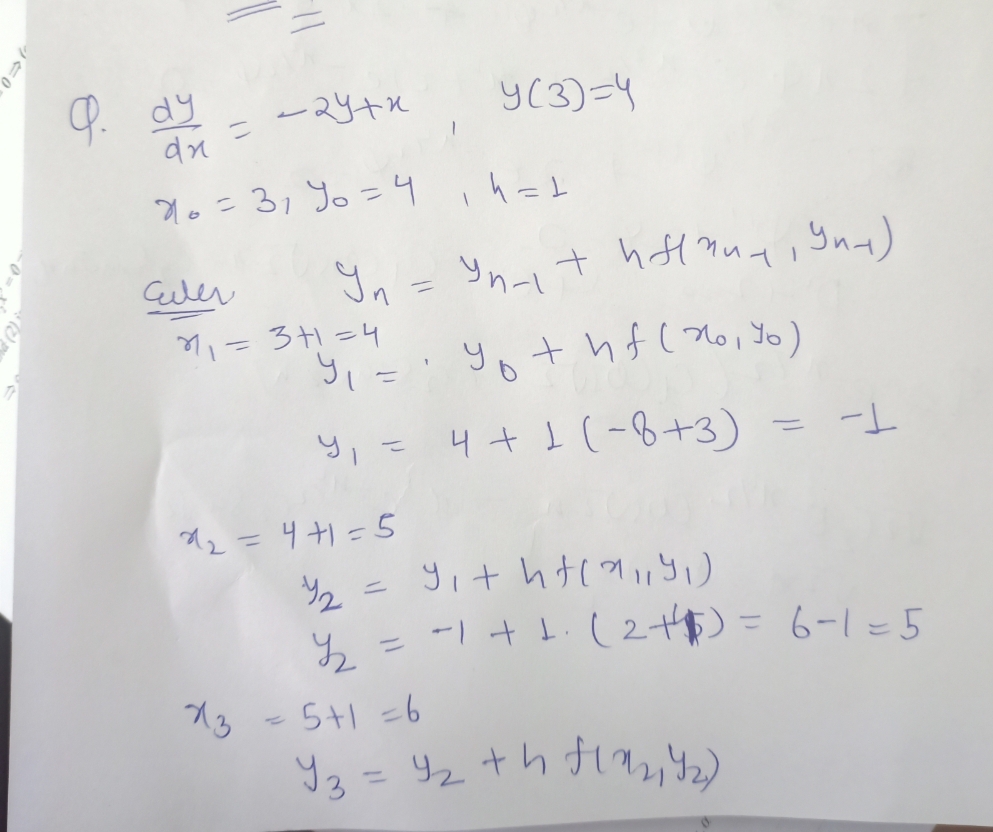 Q. dy/dx = -2y+x , y(3)=4
x₀ = 3, y₀ = 4 , h = 1
Euler yₙ = yₙ₋₁ + hf(xₙ₋₁, yₙ₋₁)
x₁ = 3+1 = 4
y₁ = y₀ + hf(x₀, y₀)
y₁ = 4 + 1(-8+3) = -1
x₂ = 4+1 = 5
y₂ = y₁ + hf(x₁, y₁)
y₂ = -1 + 1. (2+4) = 6-1 = 5
x₃ = 5+1 = 6
y₃ = y₂ + h f(x₂, y₂)